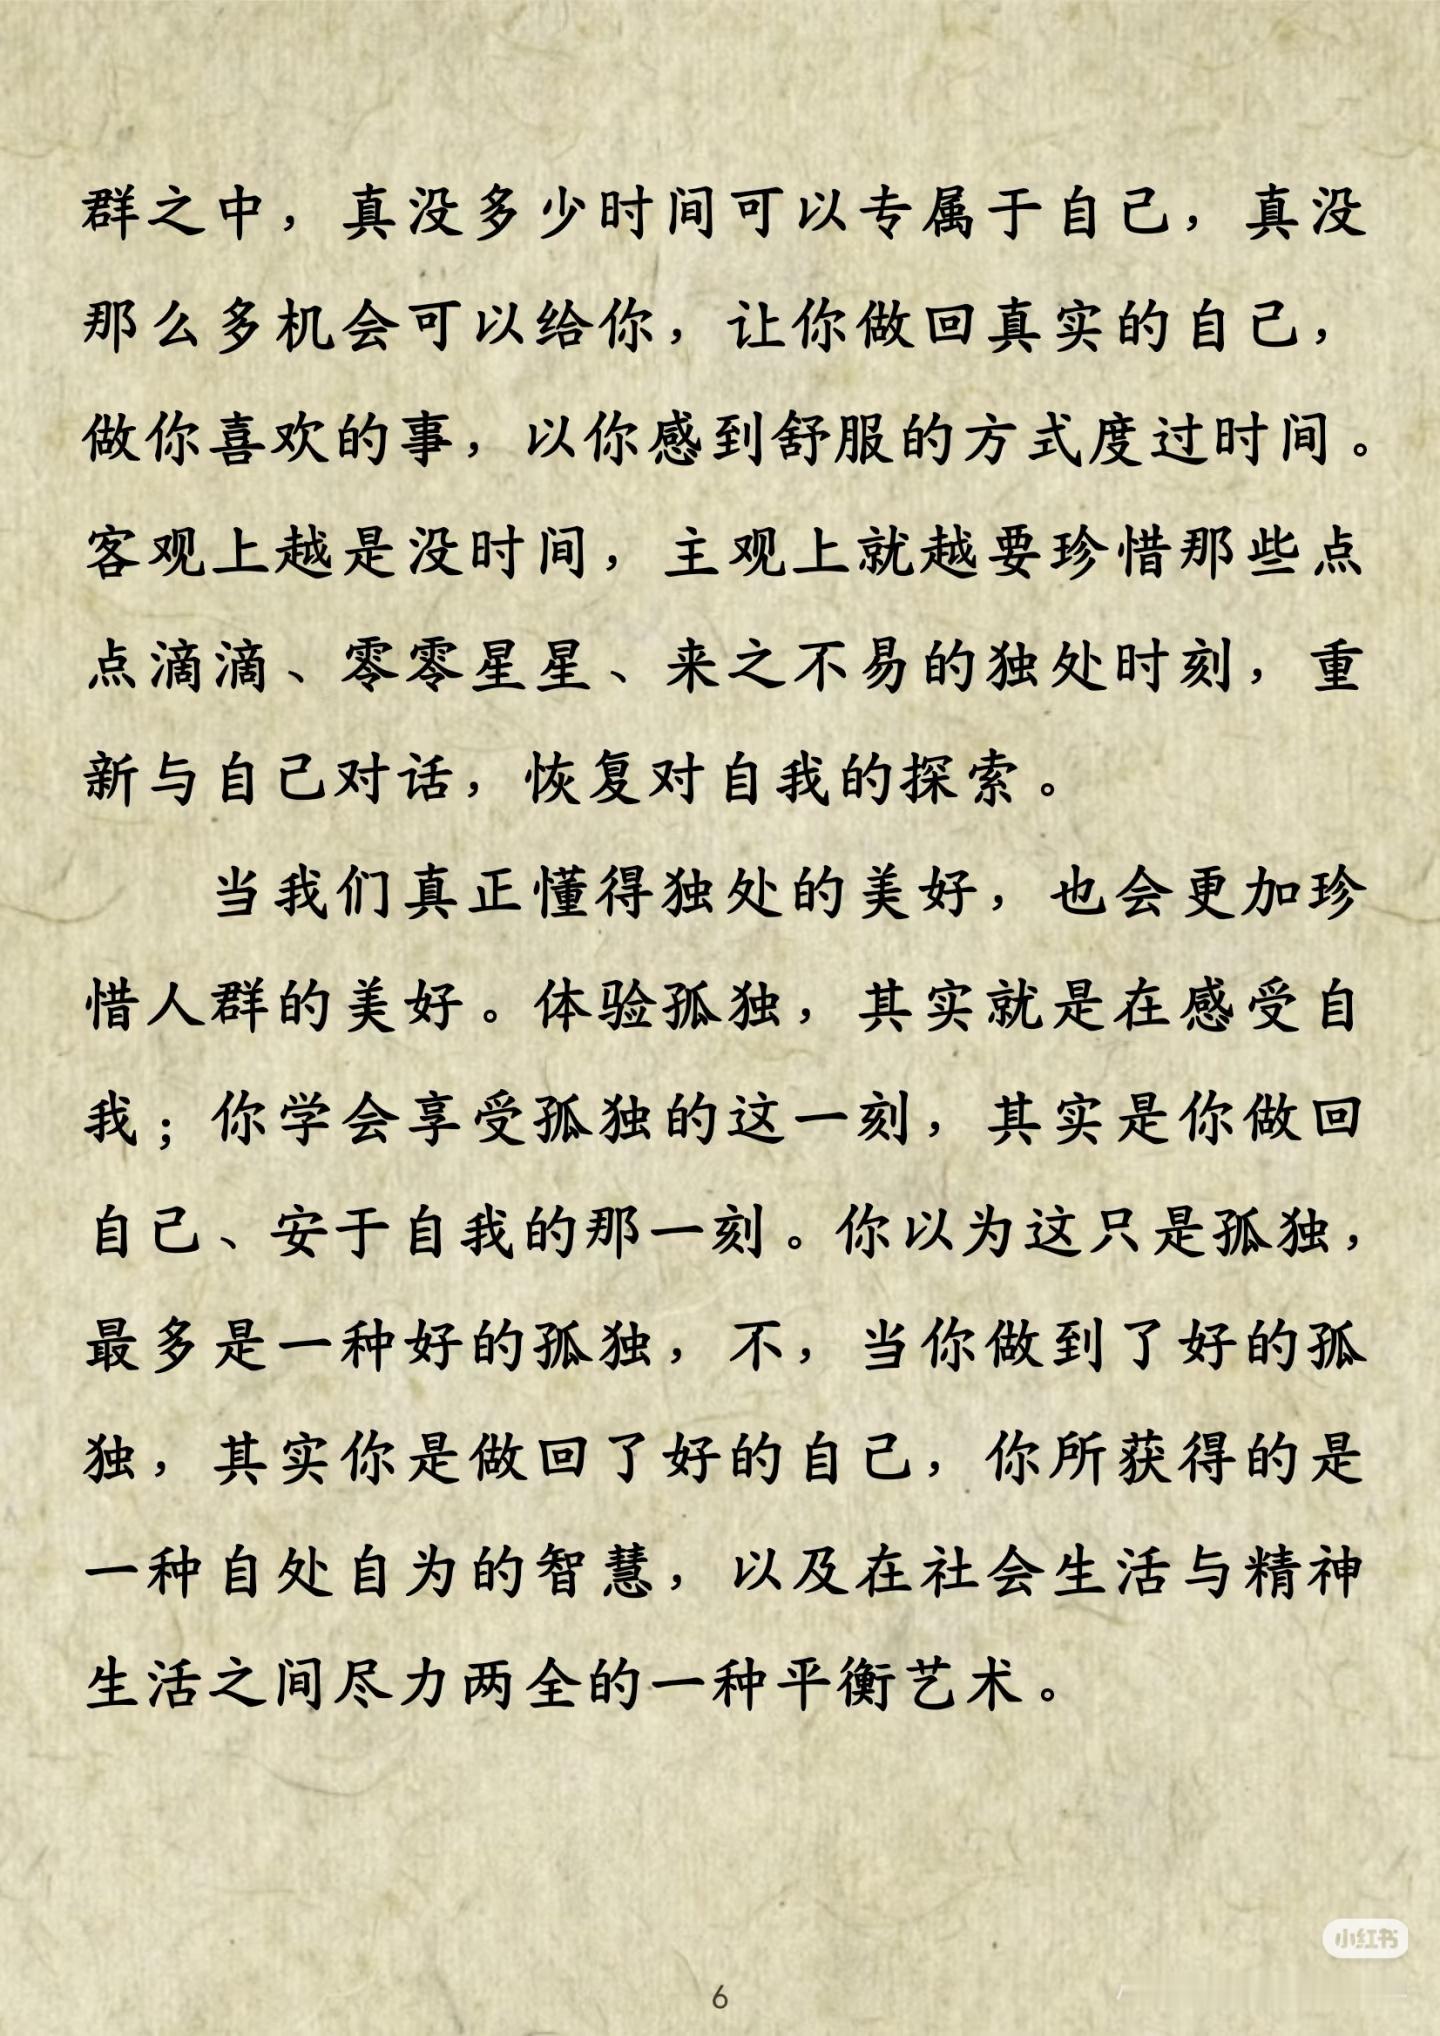 群之中，真没多少时间可以专属于自己，真没
那么多机会可以给你，让你做回真实的自己，
做你喜欢的事，以你感到舒服的方式度过时间。
客观上越是没时间，主观上就越要珍惜那些点
点滴滴、零零星星、来之不易的独处时刻，重
新与自己对话，恢复对自我的探索。
当我们真正懂得独处的美好，也会更加珍
惜人群的美好。体验孤独，其实就是在感受自
我；你学会享受孤独的这一刻，其实是你做回
自己、安于自我的那一刻。你以为这只是孤独，
最多是一种好的孤独，不，当你做到了好的孤
独，其实你是做回了好的自己，你所获得的是
一种自处自为的智慧，以及在社会生活与精神
生活之间尽力两全的一种平衡艺术。
小红书
6